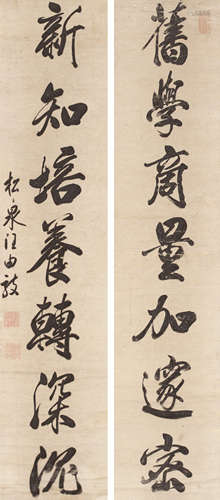 舊學商量加邃密
新知培養轉深沉
松泉汪由敦